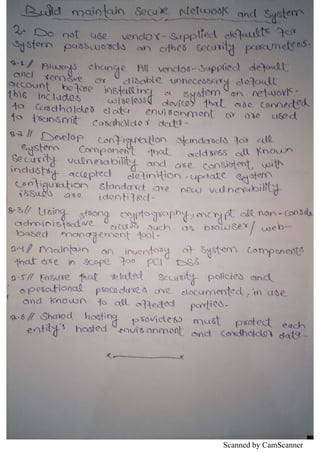 Build maintain Secure Network and System
2. Do not use vendor-supplied defaults for
System passwords an other security parameters.
2.1// Always change All vendor-supplied default
and remove or disable unnecessary default
account before installing a system on network.
this includes wireless devices that are connected
to cardholder data environment or are used
to transmit cardholder data.
2.2// Develop configuration standards for all
system component that address all known
security vulnerability and are consistent, with
industry accepted definition. update system
configuration standard are new vulnerability
issues are identified.
2.3// Using strong cryptography, encrypt all non-console
administrative access such as browser/ web-
based management tool.
2.4// Maintain an inventory of System components
that are in scope for PCI DSS
2.5// Ensure that related security policies and
operational procedures are documented, in use
and known to all affected parties.
2.6// Shared hosting providers must protect each
entity's hosted environment and cardholder data.
Scanned by CamScanner